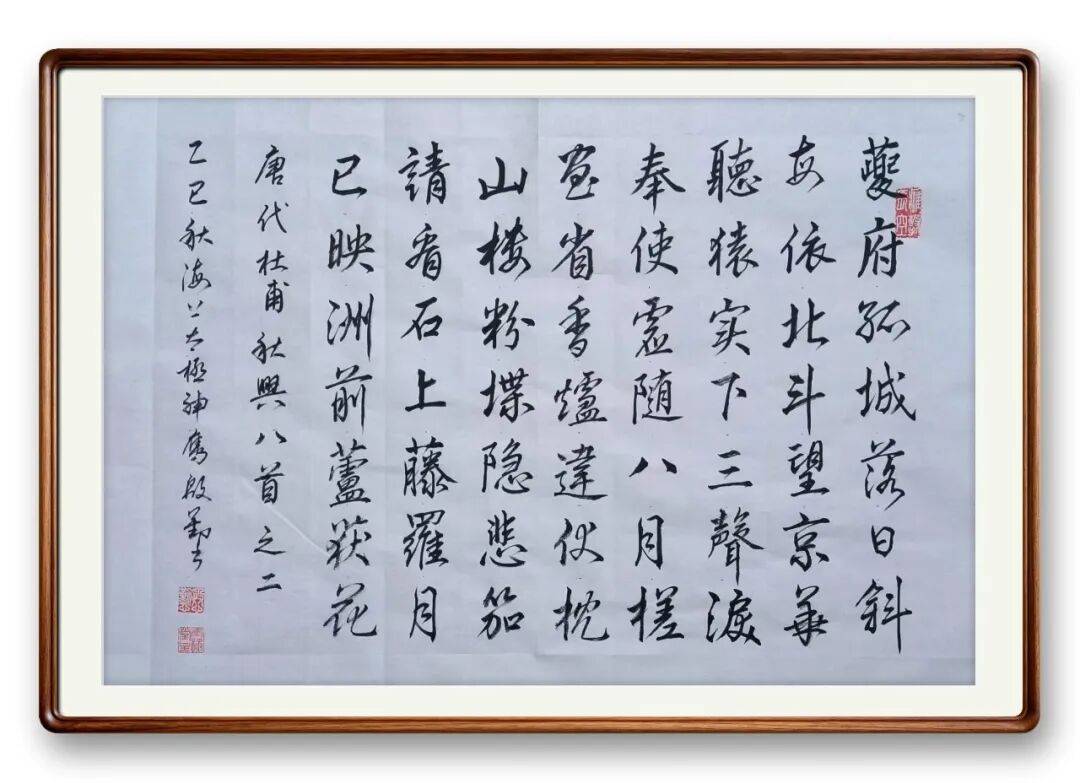 夔府孤城落日斜
每依北斗望京華
聽猿实下三聲淚
奉使虚随八月槎
畫省香爐違伏枕
山楼粉堞隐悲笳
請看石上藤羅月
已映洲前蘆荻花
唐代杜甫秋興八首之二
乙巳秋海上太極神鹰殷